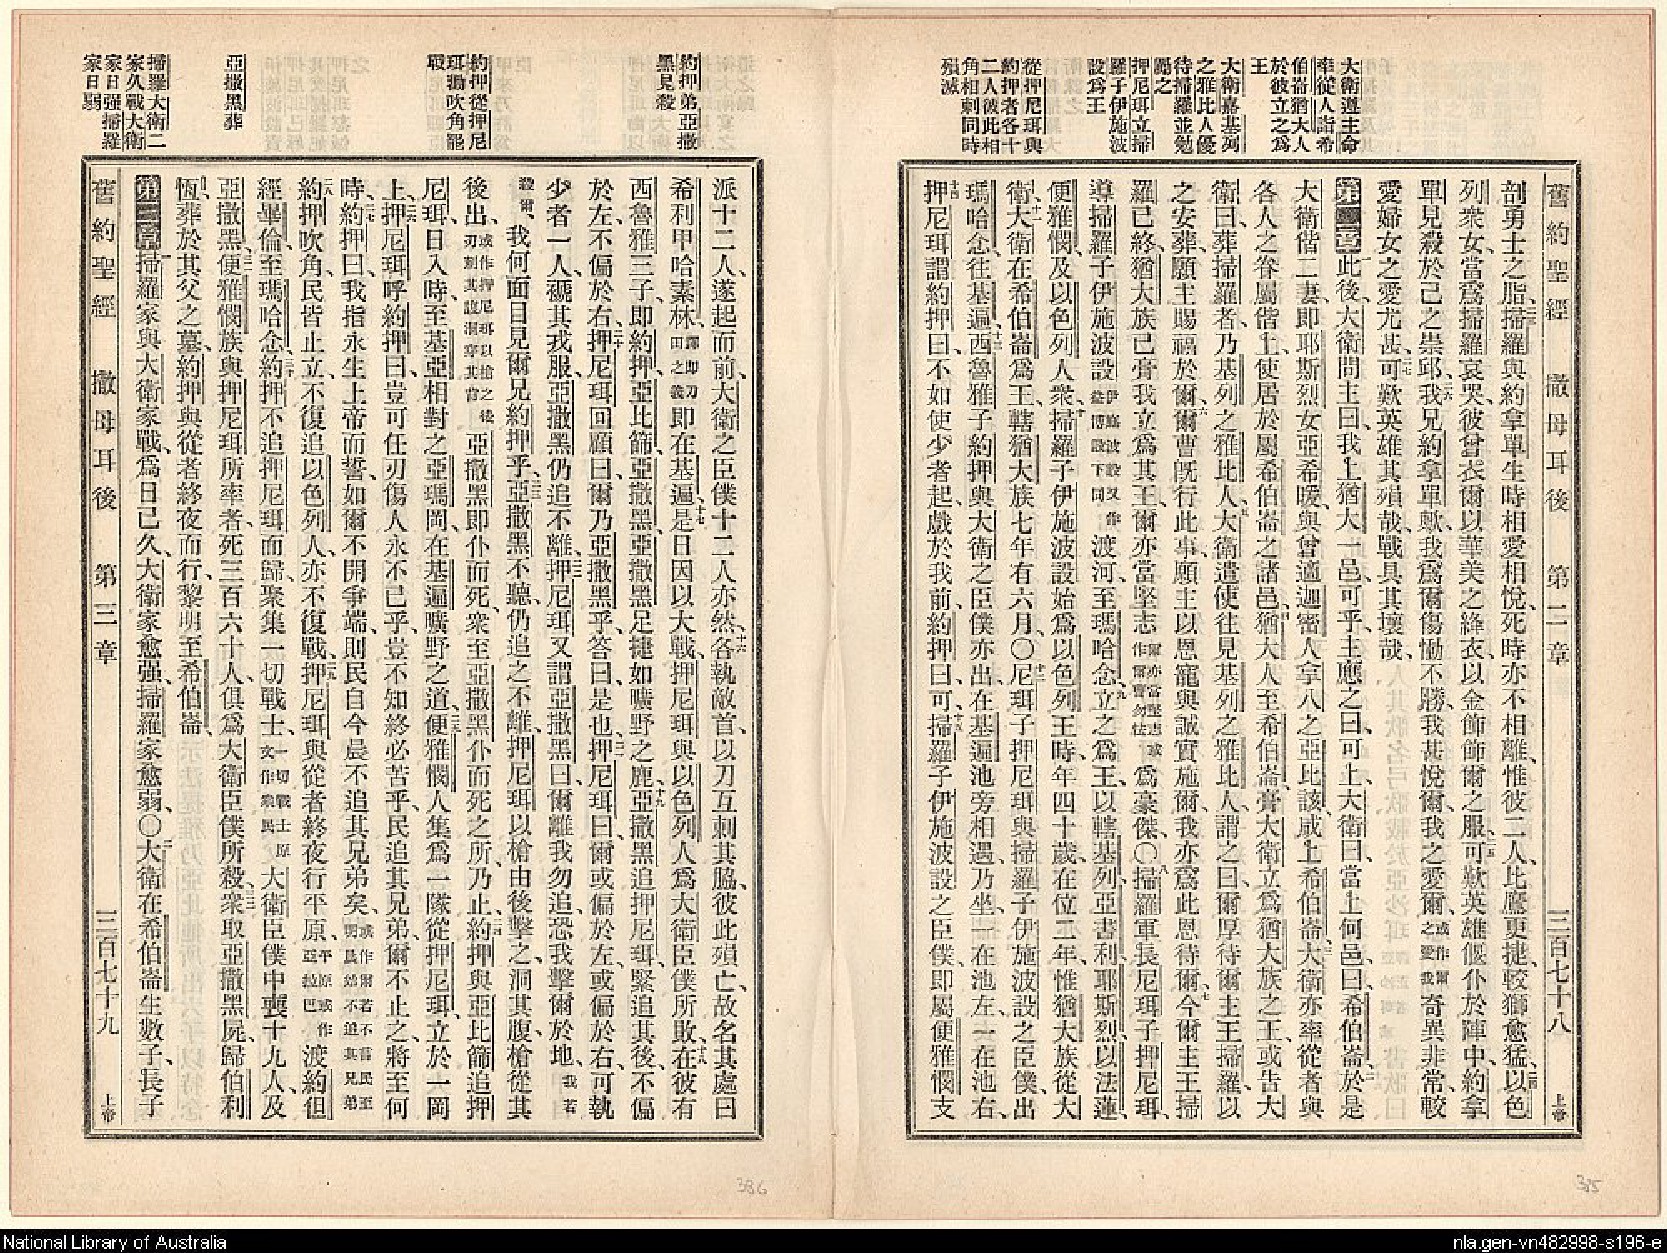 大衛遵主命
率從人詣希
伯崙猶大人
於彼立之爲
王
大衛嘉基列
之雅比人優
待掃羅並勉
勵之
押尼珥立掃
羅子伊施波
設爲王
從押尼珥與
約押者各十
二人彼此相
角相刺同時
殞滅
舊約聖經 撒母耳後 第二章 三百七十八 上帝
剖勇士之脂、掃羅與約拿單生時相愛相悅、死時亦不相離、惟彼二人、比鷹更捷、較獅愈猛、以色
列衆女、當爲掃羅哀哭、彼曾衣爾以華美之絳衣、以金飾飾爾之服、可歎英雄偃仆於陣中、約拿
單見殺於己之崇邱、我兄約拿單歟、我爲爾傷慟不勝、我甚悅爾、我之愛爾、或作爾之愛我奇異非常、較
愛婦女之愛尤甚、可歎英雄其殞哉、戰具其壞哉、
第二章此後、大衛問主曰、我上猶大一邑可乎、主應之曰、可上、大衛曰、當上何邑、曰、希伯崙、於是
大衛偕二妻、即耶斯烈女亞希暖、與曾適迦密人拿八之亞比該、咸上希伯崙、大衛亦率從者與
各人之眷屬偕上、使居於屬希伯崙之諸邑、猶大人至希伯崙、膏大衛立爲猶大族之王、或告大
衛曰、葬掃羅者、乃基列之雅比人、大衛遣使往見基列之雅比人、謂之曰、爾厚待爾主王掃羅、以
之安葬、願主賜福於爾、爾曹既行此事、願主以恩寵與誠實施爾、我亦爲此恩待爾、今爾主王掃
羅已終、猶大族已膏我立爲其王、爾亦當堅志爾亦當堅志或作爾當勿怯爲豪傑、〇掃羅軍長尼珥子押尼珥、
導掃羅子伊施波設伊施波設又作益博設下同渡河、至瑪哈念、立之爲王、以轄基列、亞書利、耶斯烈、以法蓮、
便雅憫、及以色列人衆、掃羅子伊施波設始爲以色列王時、年四十歲、在位二年、惟猶大族從大
衛、大衛在希伯崙爲王轄猶大族、七年有六月、〇尼珥子押尼珥、與掃羅子伊施波設之臣僕、出
瑪哈念、往基遍、西魯雅子約押、與大衛之臣僕亦出、在基遍池旁相遇、乃坐、一在池左、一在池右、
押尼珥謂約押曰、不如使少者起、戲於我前、約押曰、可、掃羅子伊施波設之臣僕、即屬便雅憫支
約押弟亞撒
黑見殺
約押從押尼
珥聽吹角罷
戰
亞撒黑葬
掃羅大衛二
家久戰大衛
家日强掃羅
家日弱
派十二人、遂起而前、大衛之臣僕十二人亦然、各執敵首、以刀互刺其脇、彼此殞亡、故名其處曰
希利甲哈素林、譯即刃田之義即在基遍、是日因以大戰、押尼珥與以色列人爲大衛臣僕所敗、在彼有
西魯雅三子、即約押、亞比篩、亞撒黑、亞撒黑足捷如曠野之鹿、亞撒黑追押尼珥、緊追其後、不偏
於左、不偏於右、押尼珥回顧曰、爾乃亞撒黑乎、答曰、是也、押尼珥曰、爾或偏於左、或偏於右、可執
少者一人、褫其戎服、亞撒黑仍追不離、押尼珥又謂亞撒黑曰、爾離我勿追、恐我擊爾於地、我若
殺爾、我何面目見爾兄約押乎、亞撒黑不聽、仍追之不離、押尼珥以槍由後擊之、洞其腹、槍從其
後出、或作押尼珥以槍之後刃刺其腹洞穿其背亞撒黑即仆而死、衆至亞撒黑仆而死之所、乃止、約押與亞比篩追押
尼珥、日入時、至基亞相對之亞瑪岡、在基遍曠野之道、便雅憫人集爲一隊、從押尼珥、立於一岡
上、押尼珥呼約押曰、豈可任刃傷人永不已乎、豈不知終必苦乎、民追其兄弟、爾不止之、將至何
時、約押曰、我指永生上帝而誓、如爾不開爭端、則民自今晨不追其兄弟矣、或作爾若不言民至明晨必不追其兄弟
約押吹角、民皆止立、不復追以色列人、亦不復戰、押尼珥與從者終夜行平原、平原或作亞拉巴渡約但、
經畢倫、至瑪哈念、約押不追押尼珥而歸、聚集一切戰士、一切戰士原文作衆民大衛臣僕中喪十九人、及
亞撒黑、便雅憫族與押尼珥所率者、死三百六十人、俱爲大衛臣僕所殺、衆取亞撒黑屍、歸伯利
恆、葬於其父之墓、約押與從者終夜而行、黎明至希伯崙、
第三章掃羅家與大衛家戰、爲日已久、大衛家愈强、掃羅家愈弱、〇大衛在希伯崙生數子、長子
舊約聖經 撒母耳後 第三章 三百七十九 上帝
386
385
National Library of Australia
nla.gen-vn482998-s196-e